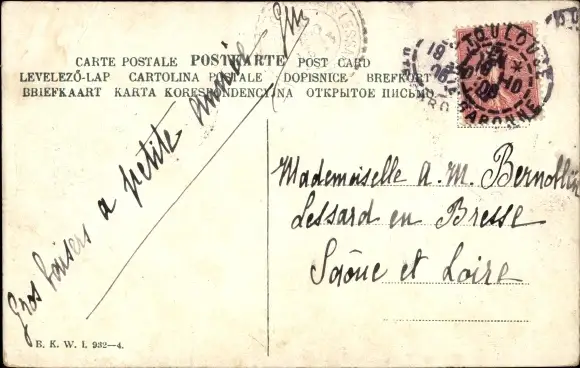 CARTE POSTALE POSTKARTE POST CARD
LEVELEZŐ-LAP CARTOLINA POSTALE DOPISNICE BREFKORT
BRIEFKAART KARTA KORESPONDENCYJNA ОТКРЫТОЕ ПИСЬМО
TOULOUSE
GARONNE
Gros baisers a petite
Mademoiselle A. M.
Lessard en Bresse
Saône et Loire
B. K. W. I. 932—4.